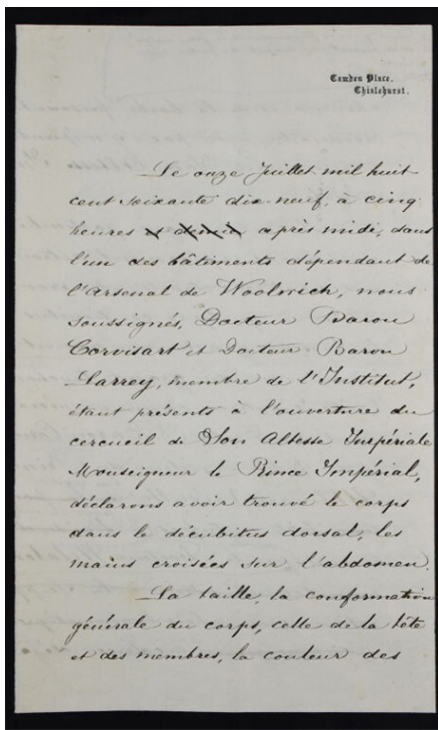 Camden Place.
Chislehurst.
Le onze Juillet mil huit
cent soixante dix neuf, à cinq
heures et demie après midi, dans
l'un des bâtiments dépendant de
l'Arsenal de Woolwich, nous
soussignés, Docteur Baron
Corvisart et Docteur Baron
Larrey, membre de l'Institut,
étant présents à l'ouverture du
cercueil de Son Altesse Impériale
Monseigneur le Prince Impérial,
déclarons avoir trouvé le corps
dans le décubitus dorsal, les
mains croisées sur l'abdomen.
La taille, la conformation
générale du corps, celle de la tête
et des membres, la couleur des